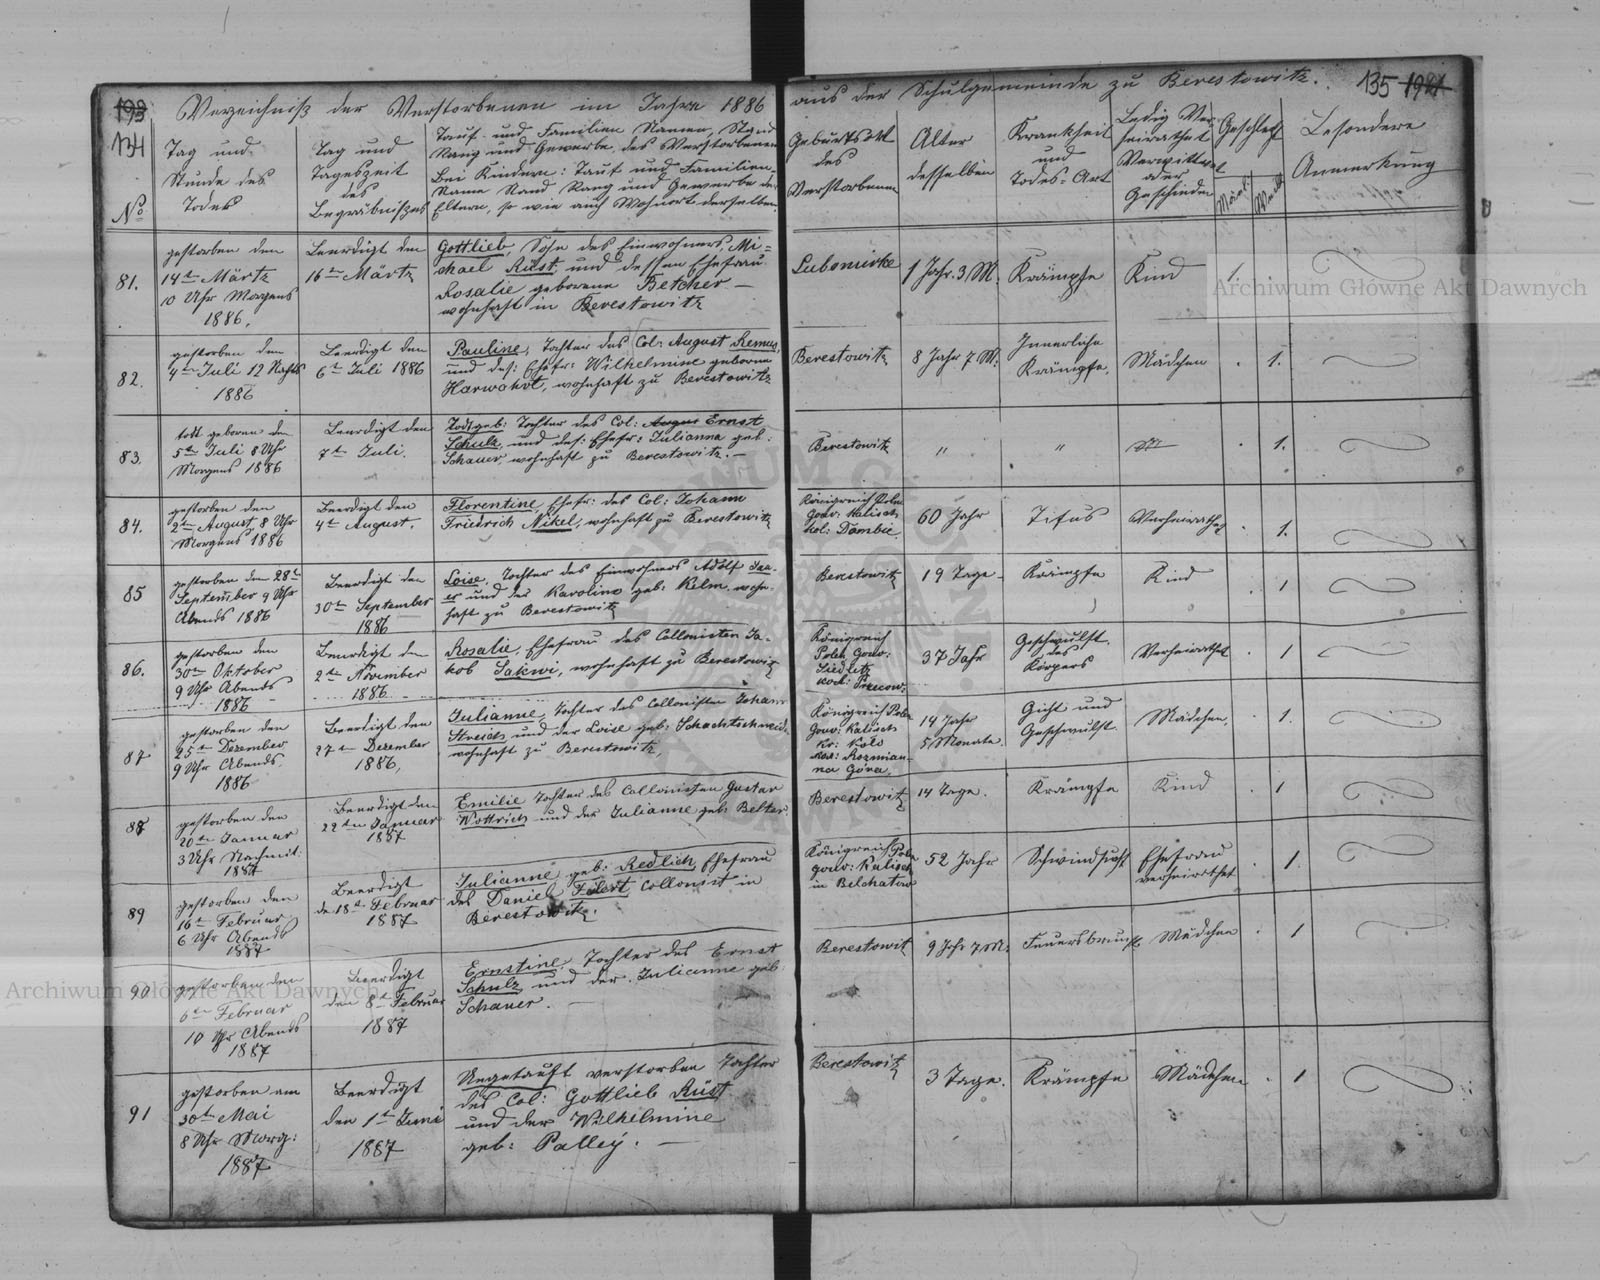 193 Verzeichniß der Verstorbenen im Jahre 1886
134
No
Tag und
Stunde des
Todes
Tag und
Tageszeit
des
Begräbnißes
Tauf- und Familien Namen, Stand
Rang und Gewerbe des Verstorbenen
Bei Kindern: Tauf und Familien-
Name Stand Rang und Gewerbe der
Eltern, so wie auch Wohnort derselben
81.
gestorben den
14ten Märtz
10 Uhr Morgens
1886.
Beerdigt den
16ten Märtz
Gottlieb, Sohn des Einwohners, Mi=
chael Rüst, und dessen Ehefrau
Rosalie geborene Betcher —
wohnhaft in Berestowitz
82.
gestorben den
4ten Juli 12 Nachts
1886
Beerdigt den
6ten Juli 1886
Pauline, Tochter des Col: August Remus,
und des: Ehefr: Wilhelmine geborene
Harwohot, wohnhaft zu Berestowitz
83.
todt geboren den
5ten Juli 8 Uhr
Morgens 1886
Beerdigt den
7ten Juli.
Todtgeb: Tochter des Col: August Ernst
Schulz, und des: Ehefr: Julianna geb:
Schauer, wohnhaft zu Berestowitz. —
84.
gestorben den
2ten August, 8 Uhr
Morgens 1886
Beerdigt den
4ten August.
Florentine, Ehefr: des Col: Johann
Friedrich Nikel, wohnhaft zu Berestowitz
85
gestorben den 28ten
September 9 Uhr
Abends 1886
Beerdigt den
30ten September
1886
Loise, Tochter des Einwohners Adolf
und der Karoline geb: Kelm, wohn-
haft zu Berestowitz
86.
gestorben den
30ten Oktober
9 Uhr Abends
1886
Beerdigt den
2ten November
1886.
Rosalie, Ehefrau des Collonisten Ja-
kob Sakwi, wohnhaft zu Berestowitz
87
gestorben den
25ten Dezember
9 Uhr Abends.
1886
Beerdigt den
27ten Dezember
1886,
Julianne, Tochter des Collonisten Johann
Streich und der Loise geb: Schachtschneid.
wohnhaft zu Berestowitz
88
gestorben den
20ten Januar
3 Uhr Nachmit:
1887
Beerdigt den
22ten Januar
1887
Emilie Tochter des Collonisten Gustav
Wottrich und der Julianne geb: Belter
89
gestorben den
16ten Februar
6 Uhr Abends
1887
Beerdigt
den 18ten Februar
1887
Julianne geb: Redlich, Ehefrau
des Daniel Collonist in
Berestowitz.
90
gestorben den
6ten Februar
10 Uhr Abends
1887
Beerdigt
den 8ten Februar
1887
Ernstine, Tochter des Ernst
Schulz und der Julianne geb:
Schauer. —
91
gestorben am
30ten Mai
8 Uhr Morg:
1887
Beerdigt
den 1ten Juni
1887
Ungetauft verstorben Tochter
des Col: Gottlieb Rüst
und der Wilhelmine
geb: Palley. —
aus der Schulgemeinde zu Berestowitz. 135 194
Geburtsort
des
Verstorbenen
Alter
desselben
Krankheit
und
Todes-Art
Ledig Ver-
heirathet
Verwittwet
oder
Geschieden
Geschlecht
Mänl.
Weibl.
Besondere
Anmerkung
Lubomirke
1 Jahr. 3 M.
Krämpfe
Kind
1.
Berestowitz
8 Jahr 7 M:
Innerliche
Krämpfe.
Mädchen
1.
Berestowitz
"
"
1.
Königreich Polen
Gouv: Kalisch
Kol: Dambie
60 Jahr
Tifus
Verheirathet
1.
Berestowitz
19 Tage
Krämpfe
Kind
1
Königreich
Polen Gouv:
Siedletz
Kol:
37 Jahr
Geschwulst
des
Körpers
Verheirathet
1
Königreich Polen
Gouv: Kalisch
Kr: Kolo
Kol: Rozmian-
na Góra.
14 Jahr
5 Monate.
Gicht und
Geschwulst
Mädchen.
1.
Berestowitz
14 Tage.
Krämpfe
Kind
1
Königreich Polen
Gouv: Kalisch
in Belchatow
52 Jahr
Schwindsucht
Ehefrau
verheirathet
1.
Berestowit
9 Jahr 7 M:
Feuersbrunst
Mädchen
1
Berestowitz
3 Tage.
Krämpfe
Mädchen
1
Archiwum Główne Akt Dawnych
Archiwum Główne Akt Dawnych